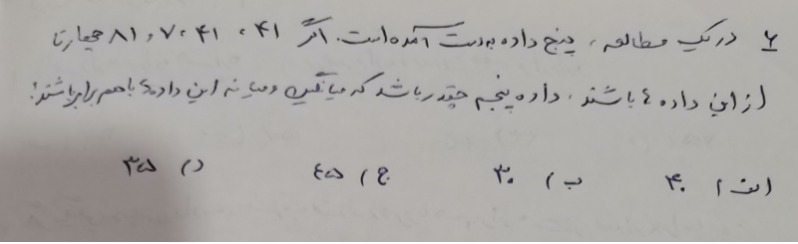 ۶ در یک مطالعه، پنج داده بدست آمده است. اگر ۴۱، ۴۱، ۷ و ۸۱ چهارتا
از این داده ها باشند، داده پنجم چقدر باشد که میانگین و میانه این داده ها باهم برابر باشند؟
الف) ۴۰ ب) ۳۰ ج) ۴۵ د) ۳۵